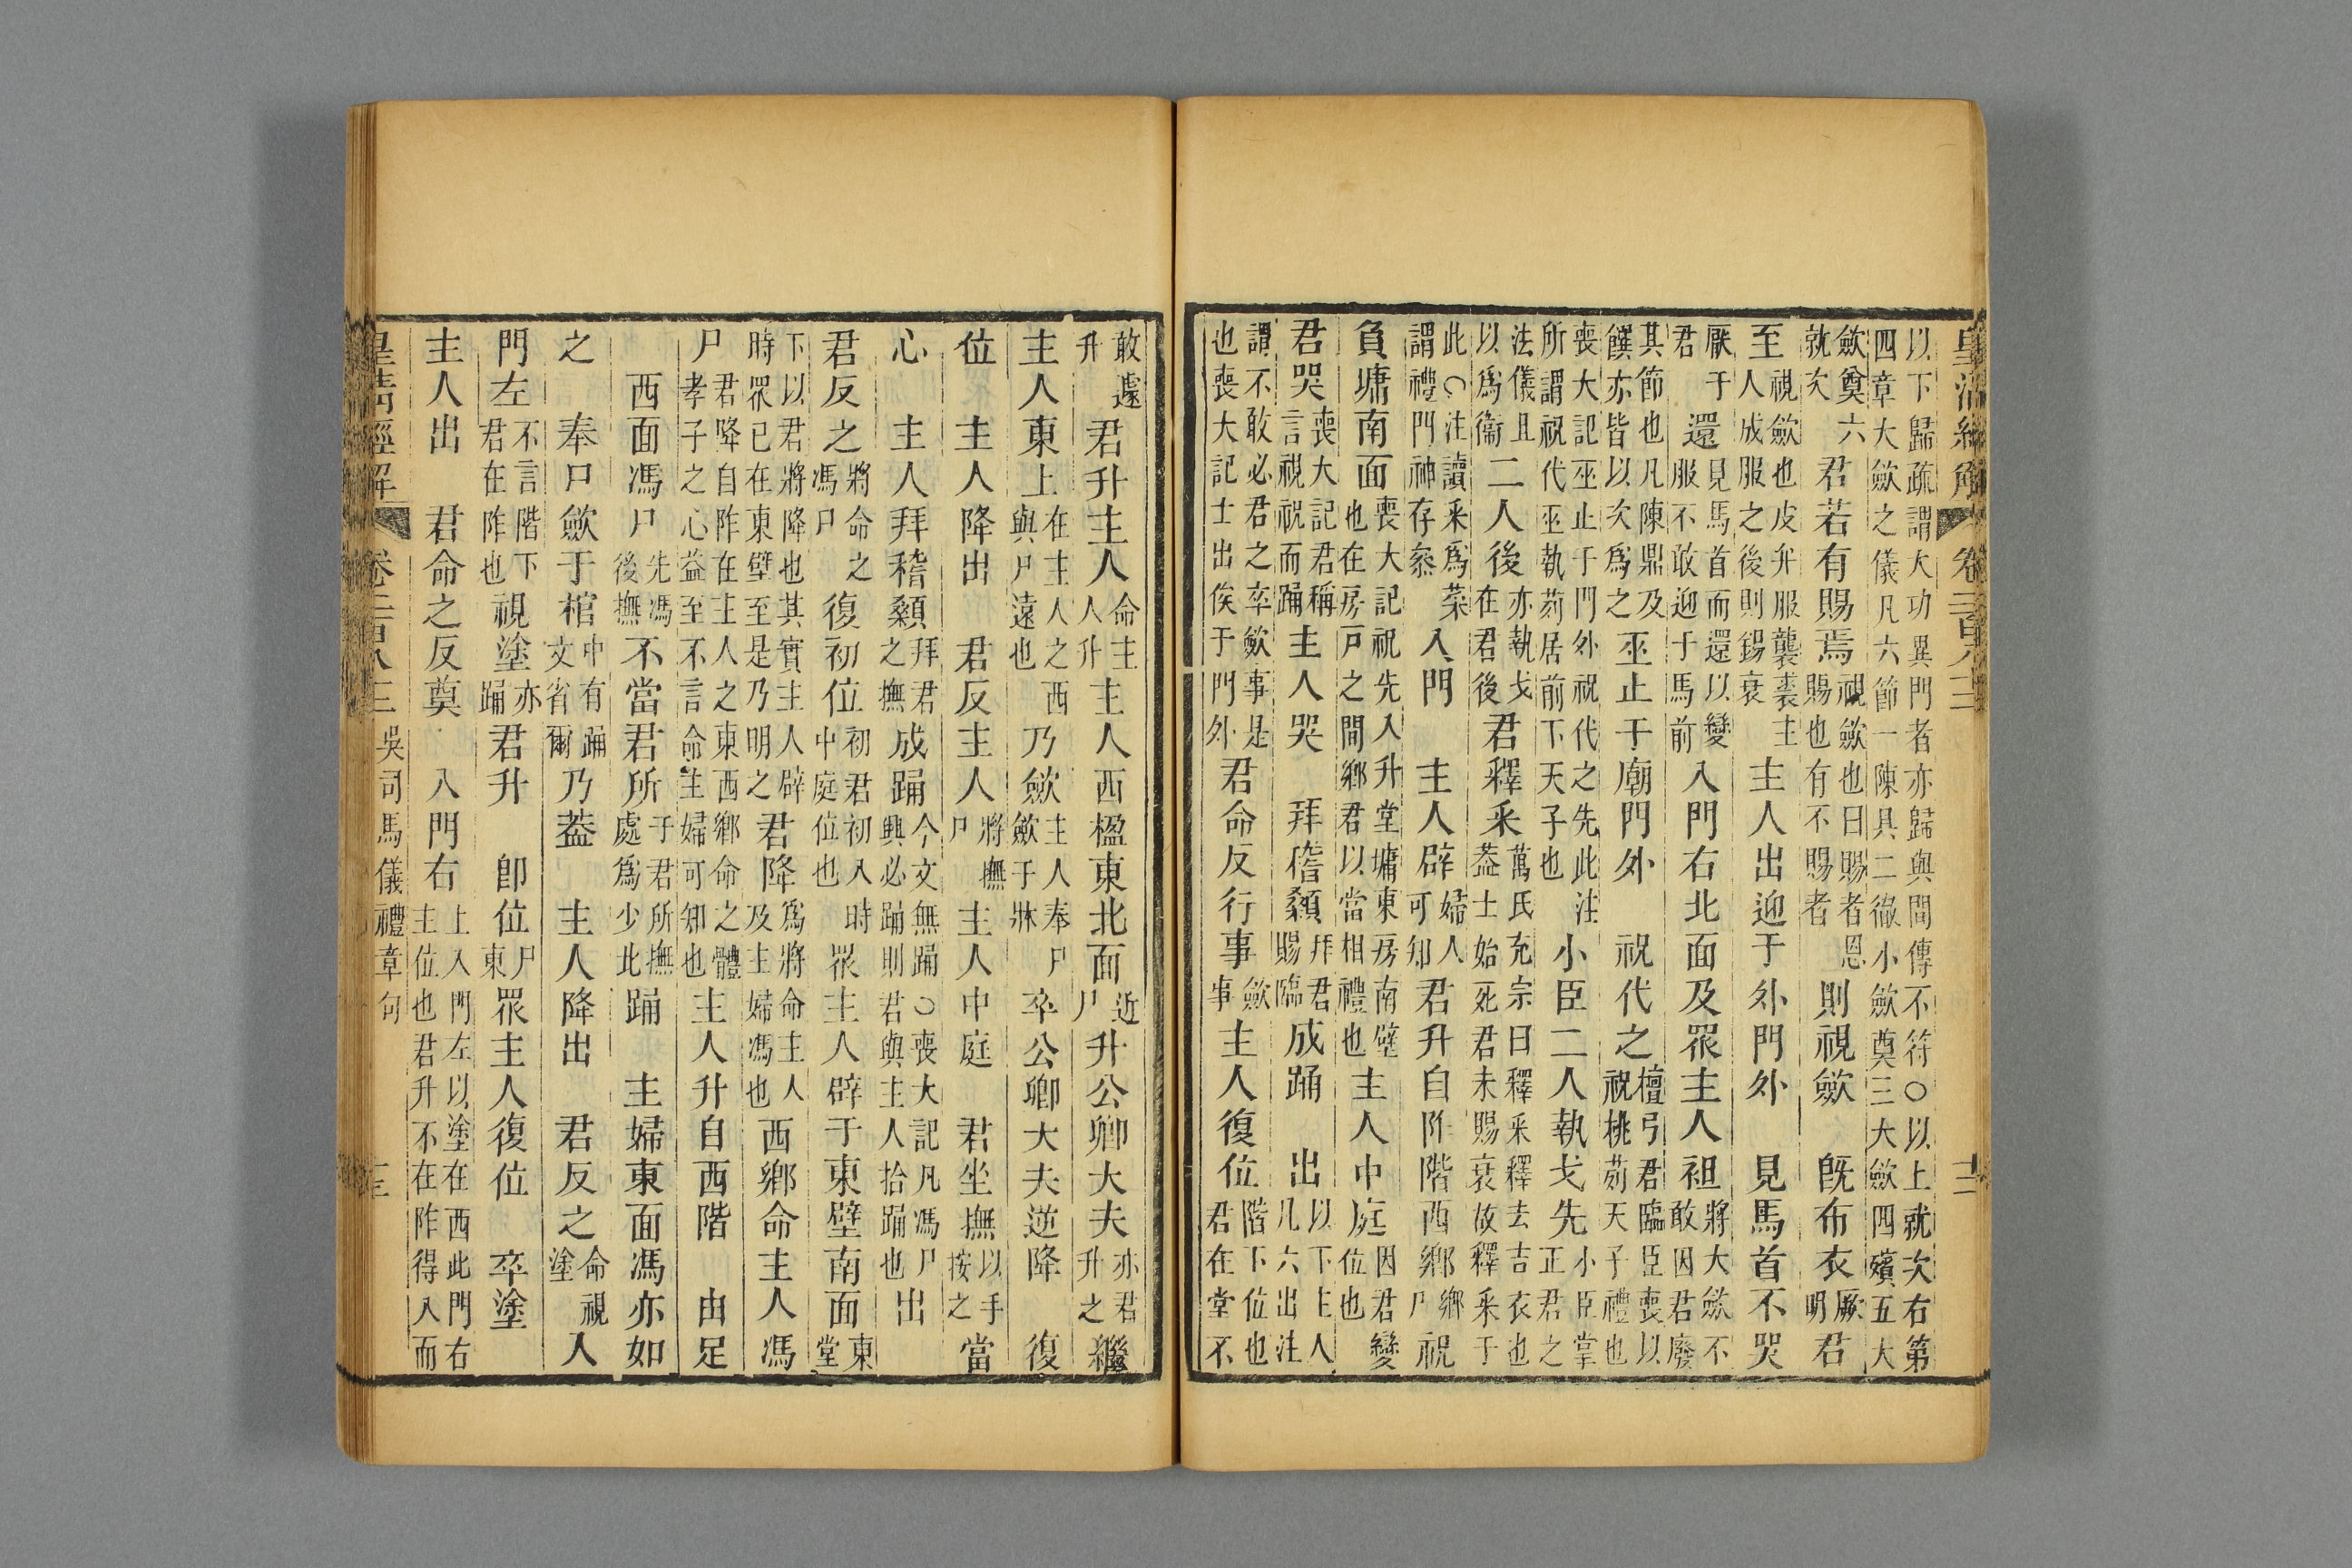 皇清經解 卷二百八三 十二
以下歸疏謂大功異門者亦歸與閒傳不符○以上就次右第四章大斂之儀凡六節一陳具二徹小斂奠三大斂四殯五大
斂奠六就次 君若有賜焉 視斂也曰賜者恩賜也有不賜者 則視斂 既布衣 厥明 君
至 視斂也皮弁服襲裘主人成服之後則錫衰 主人出迎于外門外 見馬首不哭
厭于君 還 見馬首而還以變服不敢迎于馬前 入門右北面及眾主人袒 將大斂不敢因君廢
其節也凡陳鼎及饌亦皆以次爲之 巫止于廟門外 祝代之 檀弓君臨臣喪以祝桃茢天子禮也
喪大記巫止于門外祝代之先此注所謂祝代巫執茢居前下天子也 小臣二人執戈先 小臣掌正君之
法儀且以爲衞 二人後 亦執戈在君後 君釋采 萬氏充宗曰釋采釋去吉衣也葢士始死君未賜衰故釋采于
此○注讀采爲菜謂禮門神存叅 入門 主人辟 婦人可知 君升自阼階西鄉 鄉尸 祝
負墉南面 喪大記祝先入升堂墉東房南壁也在房戶之間鄉君以當相禮也 主人中庭 因君變位也
君哭 喪大記君稱言視祝而踊 主人哭 拜稽顙 拜君賜臨 成踊 出 以下主人凡六出注
謂不敢必君之卒斂事是也喪大記士出俟于門外 君命反行事 斂事 主人復位 階下位也君在堂不
敢遽升 君升主人 命主人升 主人西楹東北面 近尸 升公卿大夫 亦君升之 繼
主人東上 在主人之西與尸遠也 乃斂 主人奉尸斂于牀 卒公卿大夫逆降 復
位 主人降出 君反主人 將撫尸 主人中庭 君坐撫 以手按之 當
心 主人拜稽顙 拜君之撫 成踊 今文無踊○喪大記凡馮尸興必踊則君與主人拾踊也 出
君反之 將命之馮尸 復初位 初君初入時中庭位也 眾主人辟于東壁南面 東堂
下以君將降也其實主人辟時眾已在東壁至是乃明之 君降 爲將命主人及主婦馮也 西鄉命主人馮
尸 君降自阼在主人之東西鄉命之體孝子之心益至不言命主婦可知也 主人升自西階 由足
西面馮尸 先馮後撫 不當君所 子君所撫處爲少此 踊 主婦東面馮亦如
之 奉尸斂于棺 中有踊文省爾 乃葢 主人降出 君反之 命視塗 入
門左 不言階下君在阼也 視塗 亦踊 君升 卽位 尸東 眾主人復位 卒塗
主人出 君命之反奠 入門右 上入門左以塗在西此門右主位也君升不在阼得入而
皇清經解 卷二百八三 吳司馬儀禮章句 十三